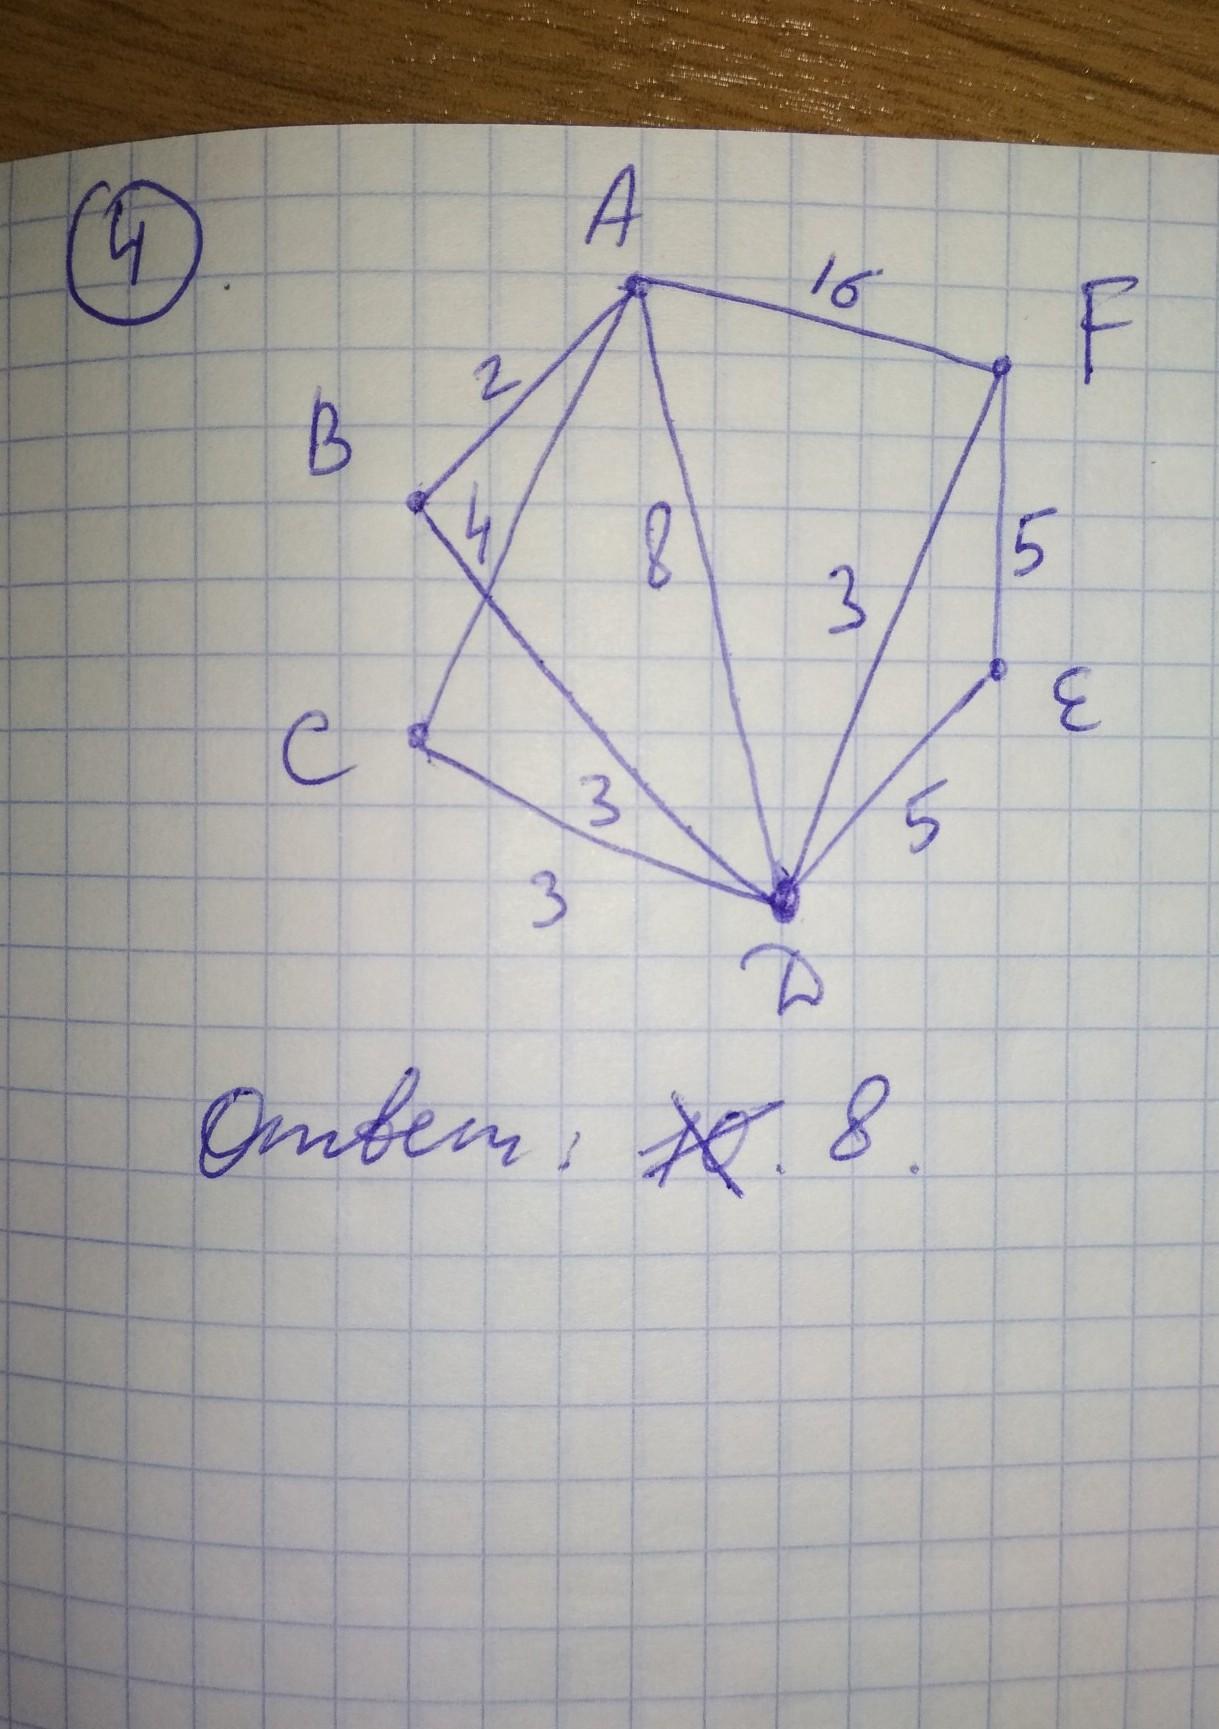 4
A
16
F
2
B
4
8
3
5
C
E
3
5
3
D
Ответ: 10. 8.